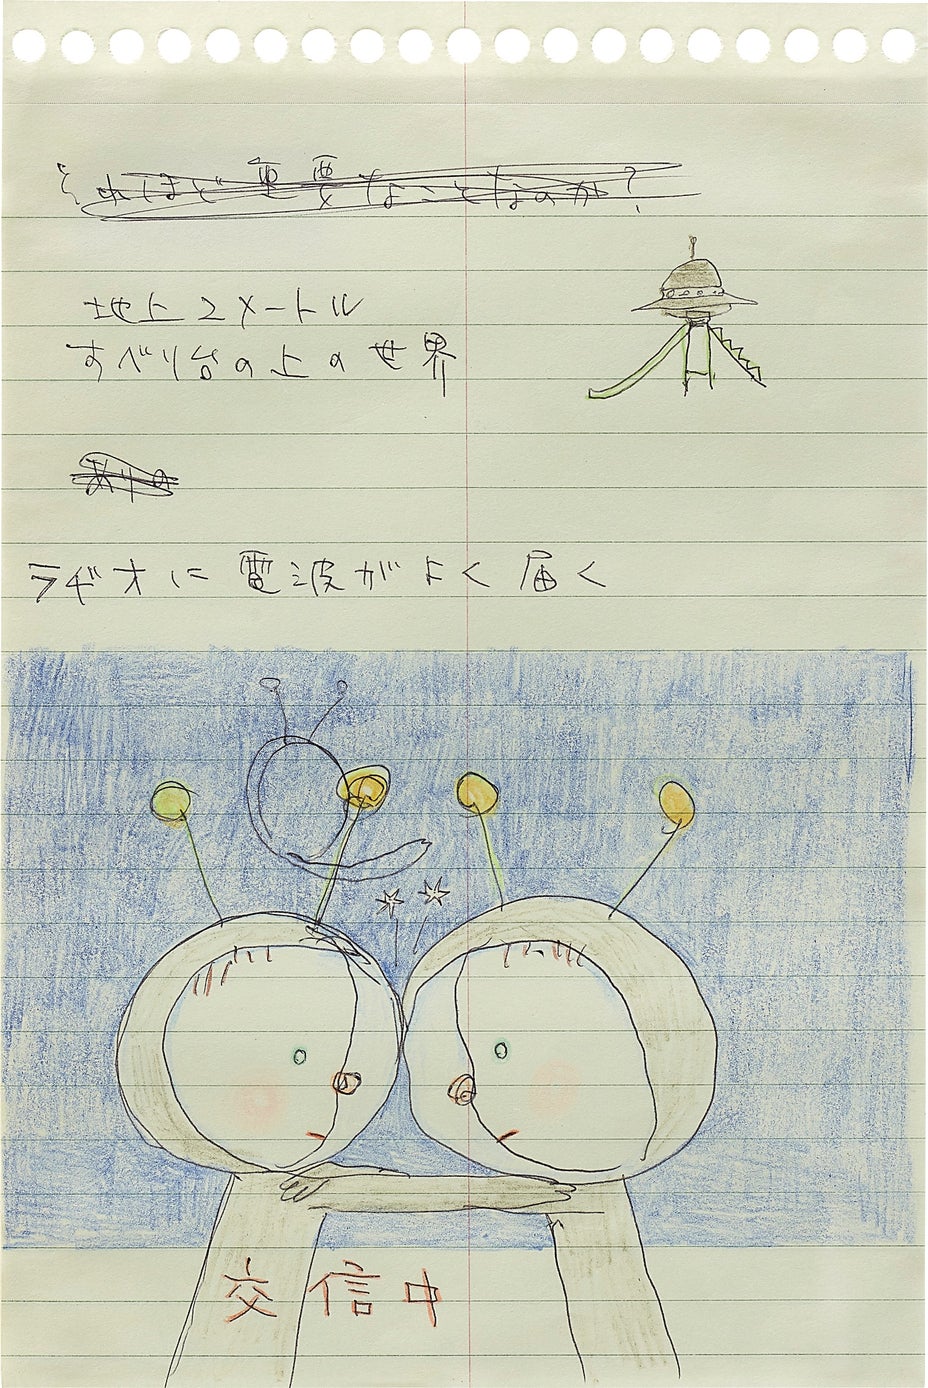 それほど重要なことなのか?
地上2メートル
すべり台の上の世界
ありの
ラヂオに電波がよく届く
交信中